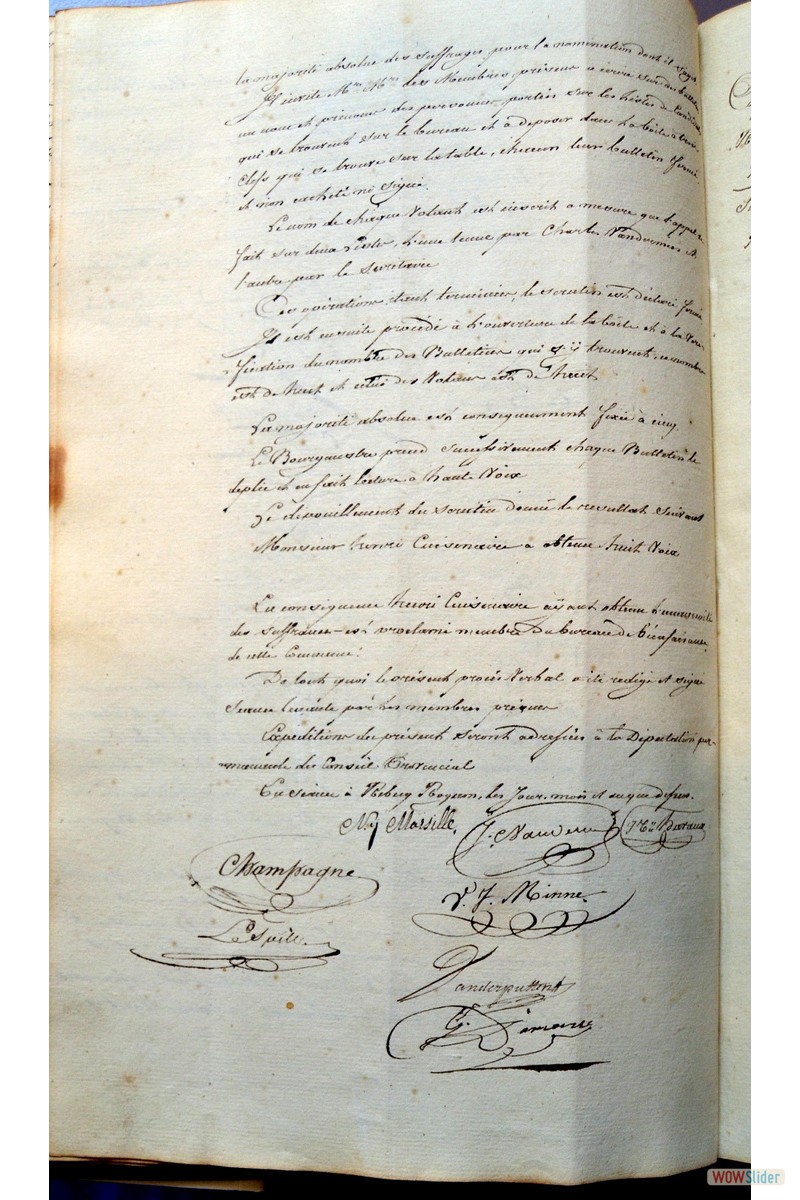 la majorité absolue des suffrages pour la nomination dont il s'agit
Il invite Mrs Mrs les Membres présens a écrire sur des bulletins
un nom et prénoms des personnes portées sur les listes de Candidats
qui se trouvent sur le bureau et à déposer dans la boîte à trois
clefs qui se trouve sur la table, chacun leur bulletin fermé
et non cacheté ni signé.
Le nom de chaque Votant est inscrit a mesure que l'appel se
fait sur deux listes, l'une tenue par Charles Vandormael
l'autre par le Secrétaire
Ces opérations étant terminées, le scrutin est déclaré fermé
Il est ensuite procédé à l'ouverture de la boîte et à la Véri-
fication du nombre des Bulletins qui s'y trouvent, ce nombre
est de huit et celui des Votans est de huit
La majorité absolue est conséquemment fixée à cinq
Le Bourgmestre prend successivement chaque Bulletin le
deplie et en fait lecture à haute Voix
Le dépouillement du scrutin donne le resultat suivant
Monsieur henri Cuisenaire a obtenu huit Voix
En conséquence henri Cuisenaire aÿant obtenu l'unanimité
des suffrages est proclamé membre du bureau de bienfaisance
de cette Commune.
De tout quoi le présent procès Verbal a été redigé et signé
Séance tenante par les membres présens
Expeditions du présent seront adressées à la Députation per-
manente du Conseil Provincial
En séance à Rebecq Rognon, les Jour, mois et an que dessus.
Marsille. J. Vanderm
Champagne
V. J. Minne
Vanderputten